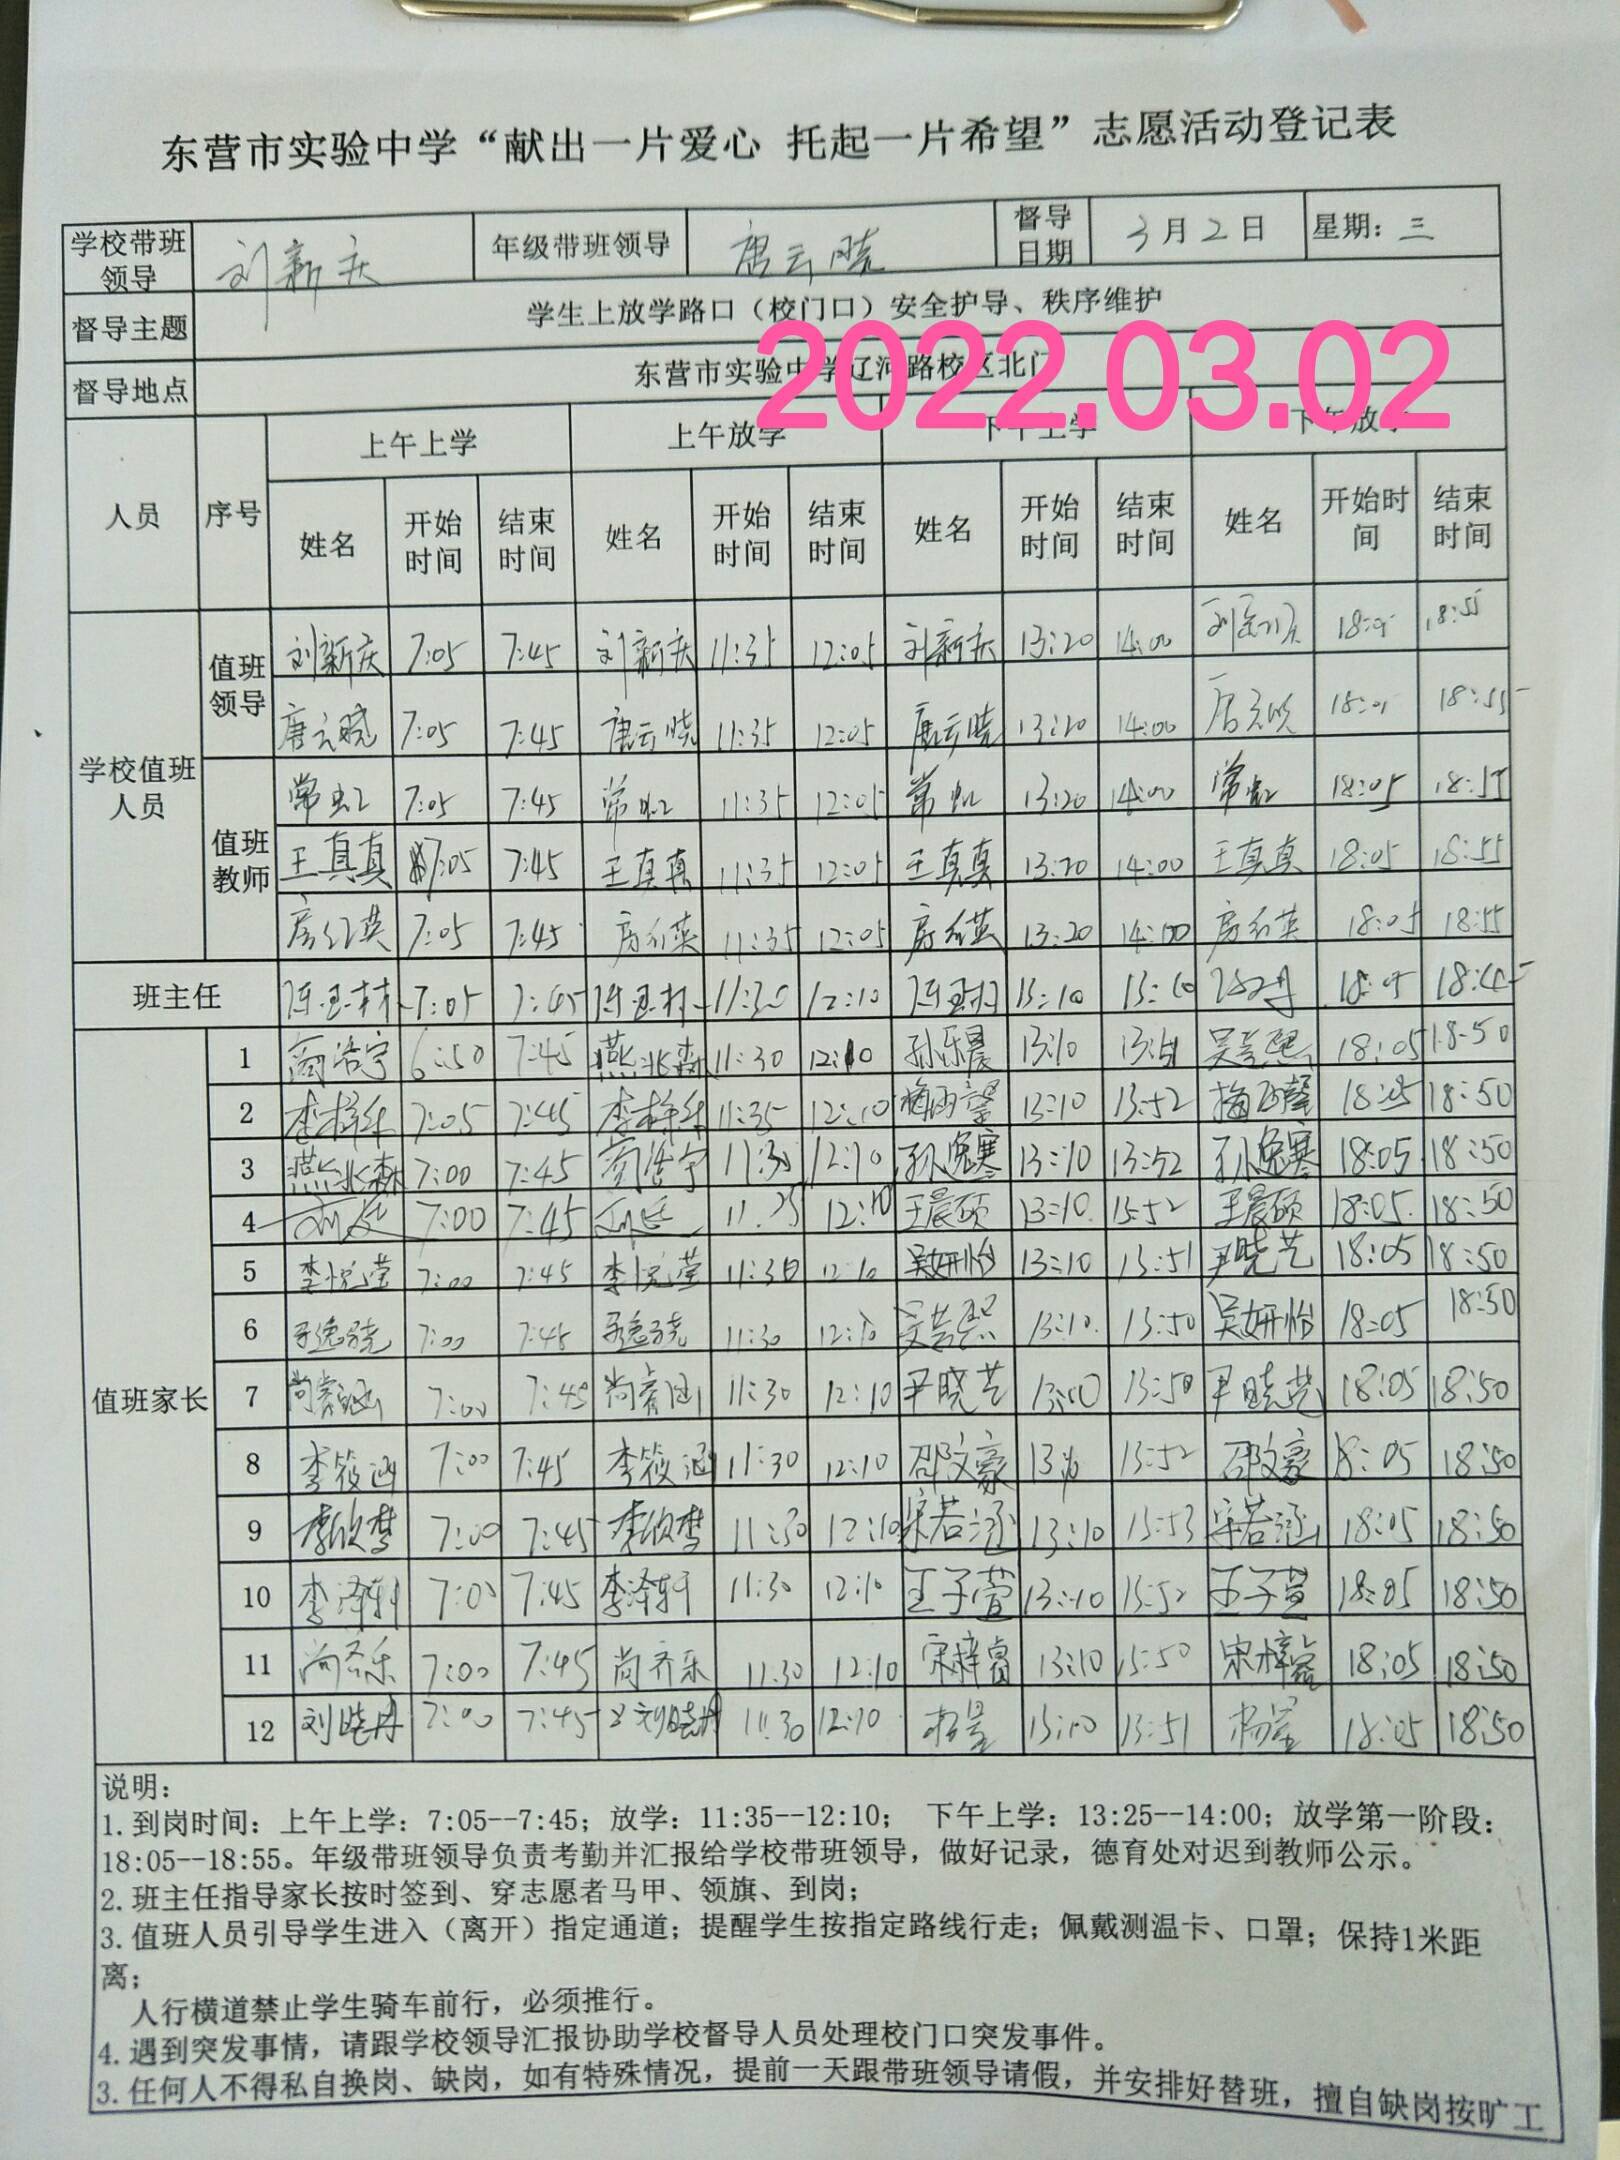 东营市实验中学“献出一片爱心 托起一片希望”志愿活动登记表
学校带班领导 刘新庆 年级带班领导 唐云晓 督导日期 3月2日 星期：三
督导主题 学生上放学路口（校门口）安全护导、秩序维护
督导地点 东营市实验中学辽河路校区北门
2022.03.02
人员 序号 上午上学 上午放学 下午上学 下午放学
姓名 开始时间 结束时间 姓名 开始时间 结束时间 姓名 开始时间 结束时间 姓名 开始时间 结束时间
学校值班人员
值班领导
刘新庆 7:05 7:45 刘新庆 11:35 12:05 刘新庆 13:20 14:00 刘新庆 18:05 18:55
唐云晓 7:05 7:45 唐云晓 11:35 12:05 唐云晓 13:20 14:00 唐云晓 18:05 18:55
值班教师
常虹 7:05 7:45 常虹 11:35 12:05 常虹 13:20 14:00 常虹 18:05 18:55
王真真 7:05 7:45 王真真 11:35 12:05 王真真 13:20 14:00 王真真 18:05 18:55
房红英 7:05 7:45 房红英 11:35 12:05 房红英 13:20 14:00 房红英 18:05 18:55
班主任 7:05 7:45 11:30 12:10 13:10 18:05 18:45
值班家长
1 商浩宇 6:50 7:45 燕兆森 11:30 12:10 孙乐晨 13:10 13:51 18:05 18:50
2 李梓华 7:05 7:45 李梓华 11:35 12:10 13:10 13:52 18:05 18:50
3 燕兆森 7:00 7:45 商浩宇 11:30 12:10 13:10 13:52 18:05 18:50
4 7:00 7:45 12:10 王晨硕 13:10 13:52 王晨硕 18:05 18:50
5 李悦莹 7:00 7:45 李悦莹 11:30 12:10 吴妍怡 13:10 13:51 尹晓艺 18:05 18:50
6 7:00 7:45 11:30 12:10 13:10 13:50 吴妍怡 18:05 18:50
7 尚睿涵 7:00 7:45 尚睿涵 11:30 12:10 尹晓艺 13:50 18:05 18:50
8 李筱涵 7:00 7:45 李筱涵 11:30 12:10 邵文豪 13:52 邵文豪 18:05 18:50
9 李欣梦 7:00 7:45 李欣梦 11:30 12:10 宋若涵 13:10 13:53 宋若涵 18:05 18:50
10 李泽轩 7:00 7:45 李泽轩 11:30 12:10 王子萱 13:10 13:52 王子萱 18:05 18:50
11 尚齐乐 7:00 7:45 尚齐乐 11:30 12:10 13:10 13:50 18:05 18:50
12 刘晓丹 7:00 7:45 刘晓丹 11:30 12:10 杨星 13:10 13:51 杨星 18:05 18:50
说明：
1.到岗时间：上午上学：7:05--7:45；放学：11:35--12:10； 下午上学：13:25--14:00；放学第一阶段：
18:05--18:55。年级带班领导负责考勤并汇报给学校带班领导，做好记录，德育处对迟到教师公示。
2.班主任指导家长按时签到、穿志愿者马甲、领旗、到岗；
3.值班人员引导学生进入（离开）指定通道；提醒学生按指定路线行走；佩戴测温卡、口罩；保持1米距
离；
人行横道禁止学生骑车前行，必须推行。
4.遇到突发事情，请跟学校领导汇报协助学校督导人员处理校门口突发事件。
3.任何人不得私自换岗、缺岗，如有特殊情况，提前一天跟带班领导请假，并安排好替班，擅自缺岗按旷工